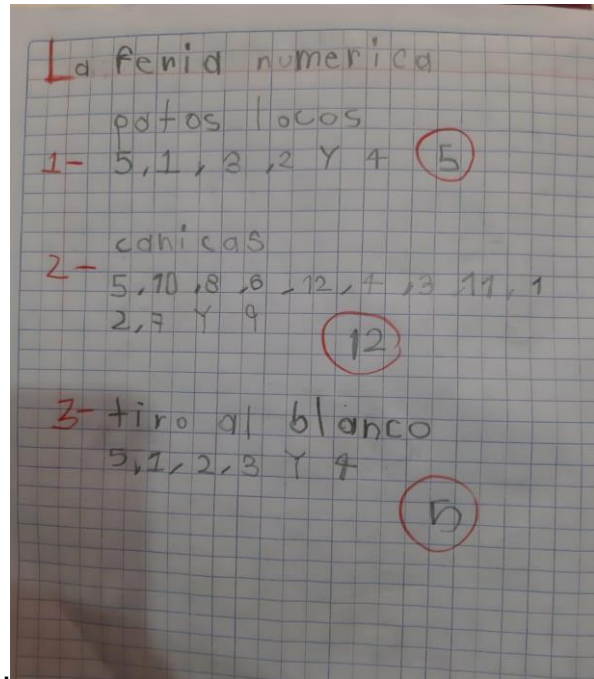 La feria numerica
patos locos
1- 5, 1, 3, 2 Y 4 5
canicas
2- 5, 10, 8, 6, 12, 4, 3 11, 1
2, 7 Y 9
12
3- tiro al blanco
5, 1, 2, 3 Y 4
5